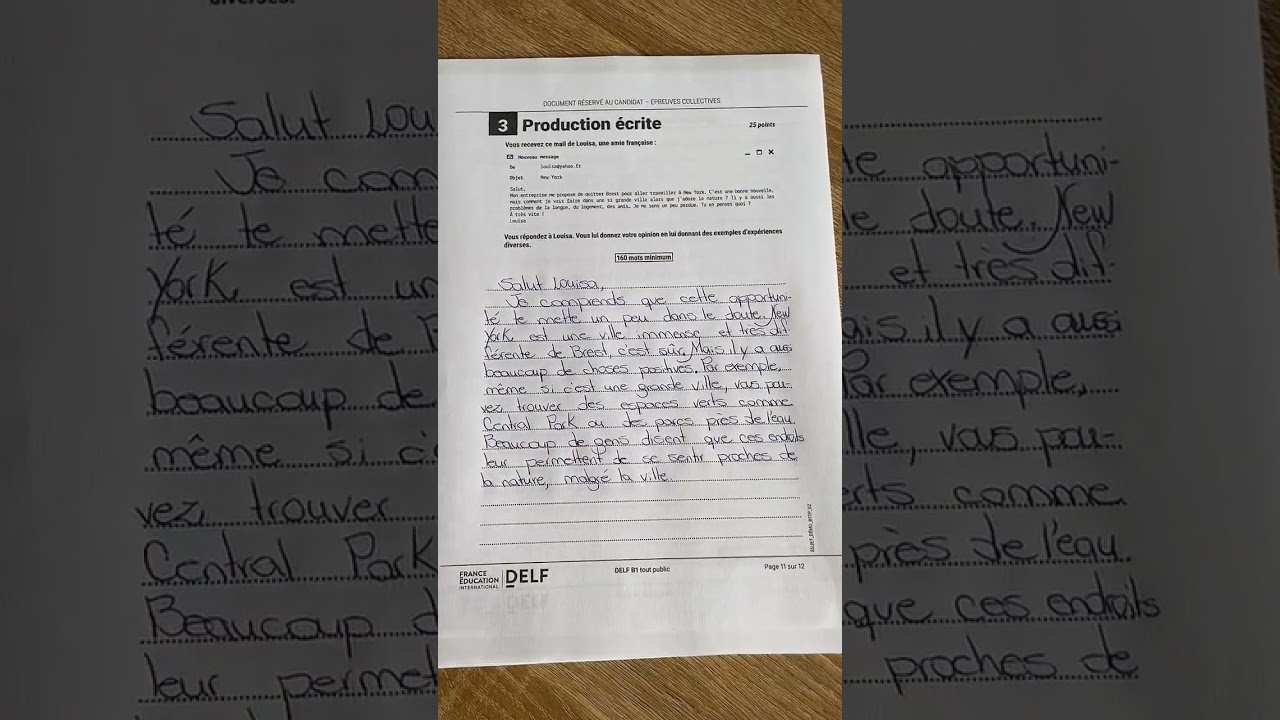 DOCUMENT RÉSERVÉ AU CANDIDAT – ÉPREUVES COLLECTIVES
3 Production écrite 25 points
Vous recevez ce mail de Louisa, une amie française :
Nouveau message
De louisa@yahoo.fr
Objet New York
Salut,
Mon entreprise me propose de quitter Brest pour aller travailler à New York. C'est une bonne nouvelle,
mais comment je vais faire dans une si grande ville alors que j'adore la nature ? Il y a aussi les
problèmes de la langue, du logement, des amis… Je me sens un peu perdue. Tu en penses quoi ?
À très vite !
Louisa
Vous répondez à Louisa. Vous lui donnez votre opinion en lui donnant des exemples d'expériences
diverses.
160 mots minimum
Salut Louisa,
Je comprends que cette opportuni-
té te mette un peu dans le doute. New
York est une ville immense et très dif-
férente de Brest, c'est sûr. Mais il y a aussi
beaucoup de choses positives. Par exemple,
même si c'est une grande ville, vous pou-
vez trouver des espaces verts comme
Central Park ou des parcs près de l'eau.
Beaucoup de gens disent que ces endroits
leur permettent de se sentir proches de
la nature, malgré la ville.
FRANCE
ÉDUCATION
INTERNATIONAL
DELF
DELF B1 tout public
Page 11 sur 12